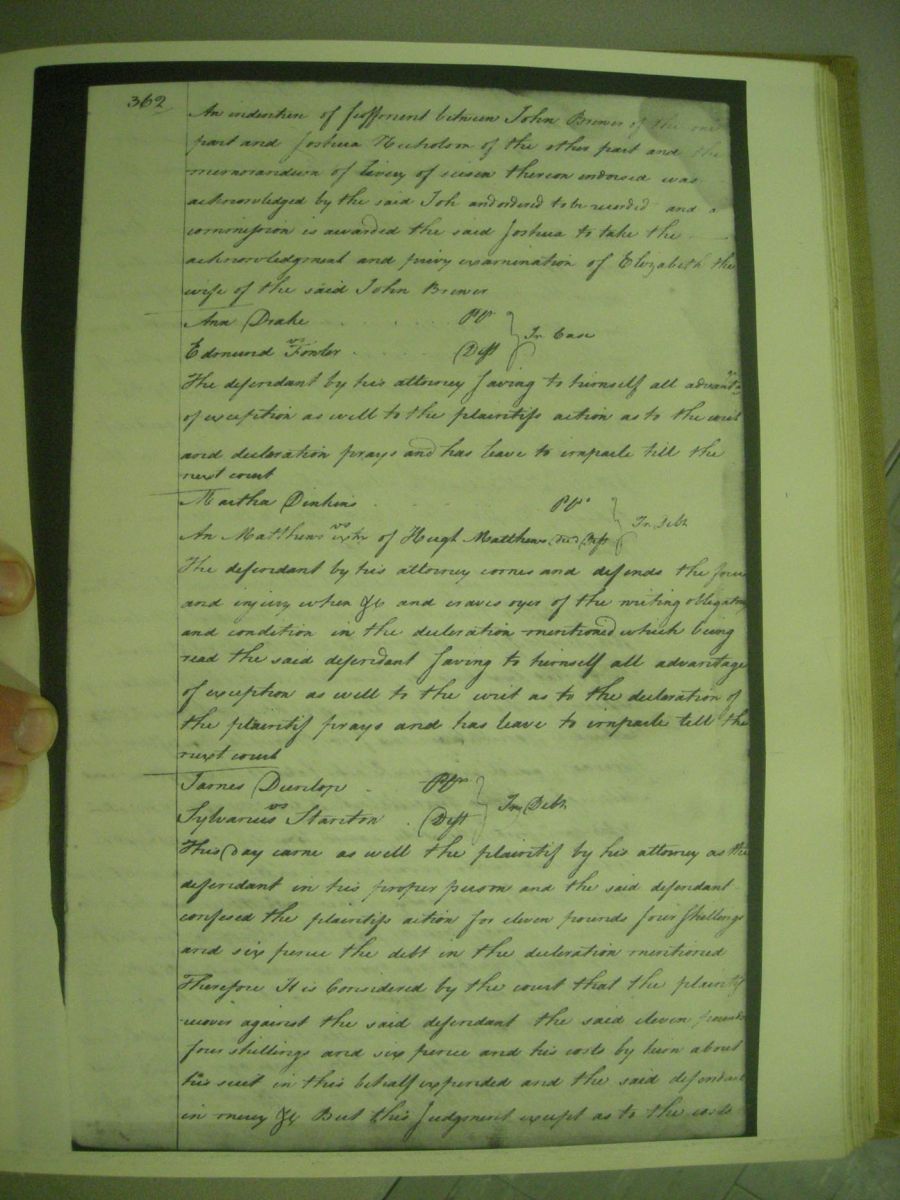 362
An indenture of feoffment between John Brewer of the one
part and Joshua Nicholson of the other part and the
memorandum of livery of seisin thereon endorsed was
acknowledged by the said Joh and ordered to be recorded and a
commission is awarded the said Joshua to take the
acknowledgment and privy examination of Elizabeth the
wife of the said John Brewer
Ann Drake Plt
vs In Case
Edmund Fowler Deft
The defendant by his attorney saving to himself all advant
of exception as well to the plaintifs action as to the writ
and declaration prays and has leave to imparle till the
next court
Martha Dinkins Plt
vs In Debt
An Matthews extx of Hugh Matthews Decd Deft
The defendant by his attorney comes and defends the force
and injury when &c and craves oyer of the writing obligatory
and condition in the declaration mentioned which being
read the said defendant saving to himself all advantage
of exception as well to the writ as to the declaration of
the plaintif prays and has leave to imparle till the
next court
James Dunlop Plt
vs In Debt
Sylvanus Stanton Deft
This Day came as well the plaintif by his attorney as the
defendant in his proper person and the said defendant
confesed the plaintifs action for eleven pounds four shillings
and six pence the debt in the declaration mentioned
Therefore It is Considered by the court that the plaintif
recover against the said defendant the said eleven pounds
four shillings and six pence and his costs by him about
his suit in this behalf expended and the said defendant
in mercy &c But this Judgment except as to the costs